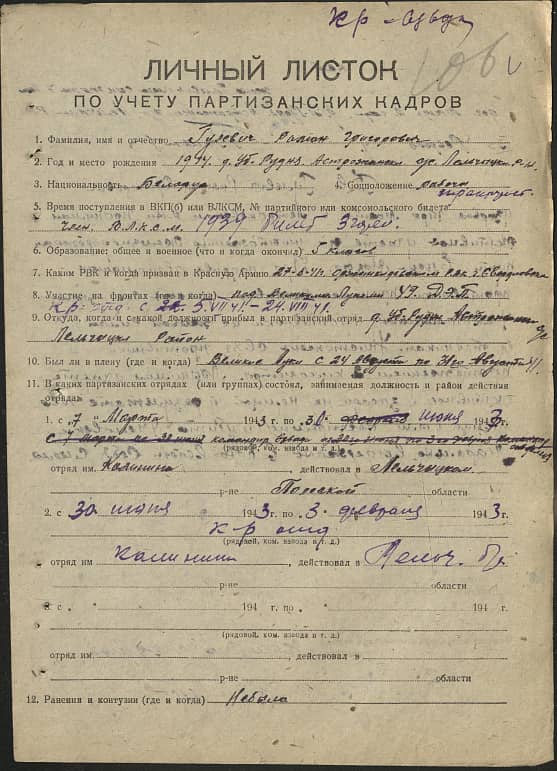 кр-
106
ЛИЧНЫЙ ЛИСТОК
ПО УЧЕТУ ПАРТИЗАНСКИХ КАДРОВ
1. Фамилия, имя и отчество Гулевич Роман Григорович
2. Год и место рождения д. Уб. Рудня
3. Национальность Беларус 4. Соцположение рабочи
5. Время поступления в ВКП(б) или ВЛКСМ, № партийного или комсомольского билета
член В.Л.К.С.М. 1939 билет
6. Образование: общее и военное (что и когда окончил) 5 класов
7. Каким РВК и когда призван в Красную Армию РВК г. Свердловск
8. Участие на фронтах (где и когда) под Великими Луками
VII 41 - 24.VIII 41.
9. Откуда, когда и с какой должности прибыл в партизанский отряд д. Уб. Рудня
Лельчицки Район
10. Был ли в плену (где и когда) Великие Луки с 24 Августа по Августа 41.
11. В каких партизанских отрядах (или группах) состоял, занимаемая должность и район действия
отряда:
1. с „7 „ Марта 1943 г. по 30 июня 1943 г.
(рядовой, ком. взвода и т. д.)
отряд им. Калинина , действовал в Лельчицком
р-не Полеской области
2. с 30 июня 1943 г. по 3. февраля 1943 г.
к-р отд
(рядовой, ком. взвода и т. д.)
отряд им Калинина , действовал в Лельч.
р-не области
3. с „ „ 194 г. по „ „ 194 г.
(рядовой, ком. взвода и т. д.)
отряд им. , действовал в
р-не области
12. Ранения и контузии (где и когда) Небыло